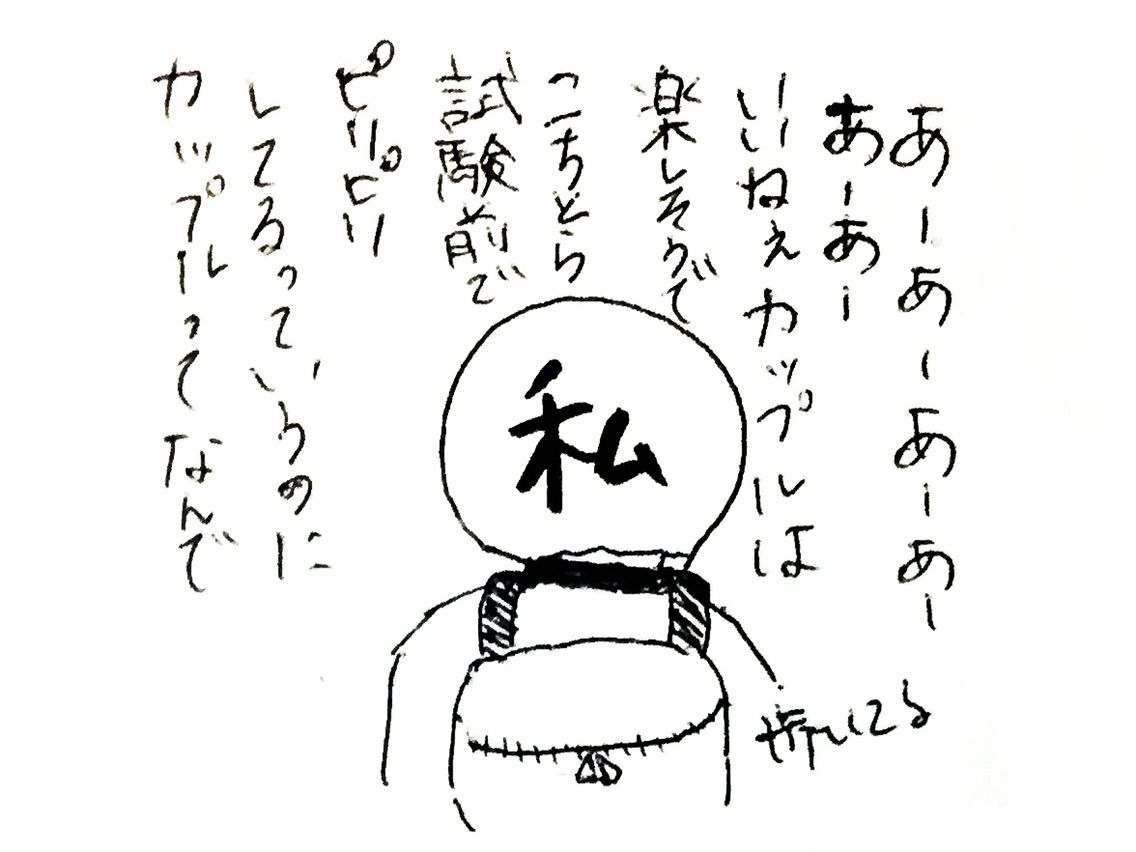 あーあーあーあー
あーあー
いいねぇカップルは
楽しそうで
こちとら
試験前で
ピリピリ
してるっていうのに
カップルってなんで
私